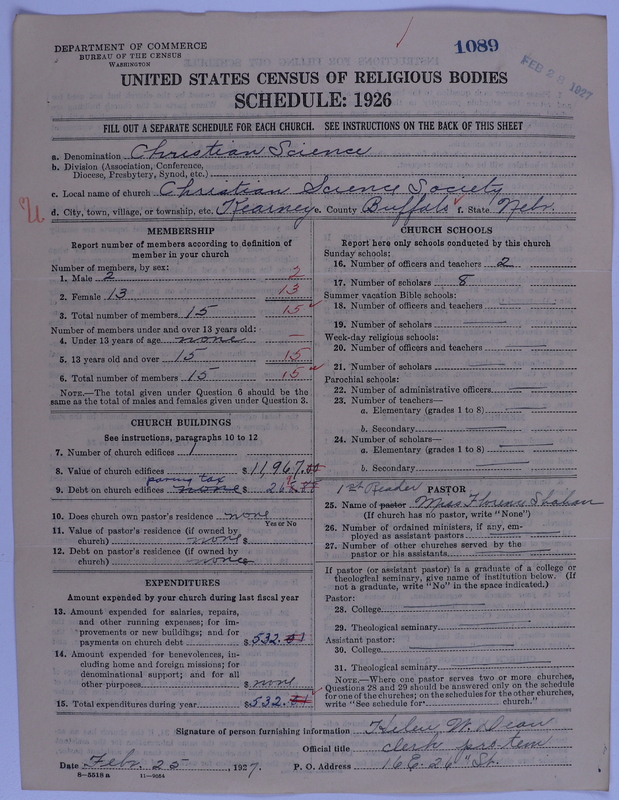 DEPARTMENT OF COMMERCE
BUREAU OF THE CENSUS
WASHINGTON
1089
FEB 28 1927
UNITED STATES CENSUS OF RELIGIOUS BODIES
SCHEDULE: 1926
FILL OUT A SEPARATE SCHEDULE FOR EACH CHURCH. SEE INSTRUCTIONS ON THE BACK OF THIS SHEET
a. Denomination Christian Science
b. Division (Association, Conference, Diocese, Presbytery, Synod, etc.)
c. Local name of church Christian Science Society
U
d. City, town, village, or township, etc. Kearney e. County Buffalo f. State Nebr.
MEMBERSHIP
Report number of members according to definition of
member in your church
Number of members, by sex:
1. Male 2 2
2. Female 13 13
3. Total number of members 15 15
Number of members under and over 13 years old:
4. Under 13 years of age none —
5. 13 years old and over 15 15
6. Total number of members 15 15
NOTE.—The total given under Question 6 should be
same as the total of males and females given under Question 3.
CHURCH BUILDINGS
See instructions, paragraphs 10 to 12
7. Number of church edifices 1
8. Value of church edifices $ 11,967.
paving tax
9. Debt on church edifices none $
10. Does church own pastor's residence none
Yes or No
11. Value of pastor's residence (if owned by
church) none $
12. Debt on pastor's residence (if owned by
church) none
EXPENDITURES
Amount expended by your church during last fiscal year
13. Amount expended for salaries, repairs,
and other running expenses; for im-
provements or new buildings; and for
payments on church debt $ 532.
14. Amount expended for benevolences, in-
cluding home and foreign missions; for
denominational support; and for all
other purposes $ none
15. Total expenditures during year $ 532.
CHURCH SCHOOLS
Report here only schools conducted by this church
Sunday schools:
16. Number of officers and teachers 2
17. Number of scholars 8
Summer vacation Bible schools:
18. Number of officers and teachers
19. Number of scholars
Week-day religious schools:
20. Number of officers and teachers
21. Number of scholars
Parochial schools:
22. Number of administrative officers
23. Number of teachers—
a. Elementary (grades 1 to 8)
b. Secondary
24. Number of scholars—
a. Elementary (grades 1 to 8)
b. Secondary
1st Reader PASTOR
25. Name of pastor Miss Florence Shahan
(If church has no pastor, write "None")
26. Number of ordained ministers, if any, em-
ployed as assistant pastors
27. Number of other churches served by the
pastor or his assistants
If pastor (or assistant pastor) is a graduate of a college or
theological seminary, give name of institution below. (If
not a graduate, write "No" in the space indicated.)
Pastor:
28. College
29. Theological seminary
Assistant pastor:
30. College
31. Theological seminary
NOTE.—Where one pastor serves two or more churches,
Questions 28 and 29 should be answered only on the schedule
for one of the churches; on the schedules for the other churches,
write "See schedule for church."
Signature of person furnishing information Helen W. Dean
Official title clerk pro-tem
Date Feb. 25, 1927. P. O. Address 16 E. 26" St.
8—5518 a 11—9564